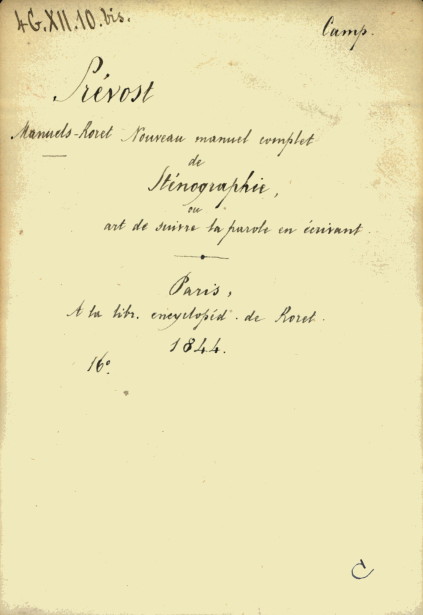 4G.XII.10.bis.
Camp.
Prévost
Manuels-Roret Nouveau manuel complet
de
Sténographie,
ou
art de suivre la parole en écrivant.
Paris,
A la libr. encyclopéd. de Roret.
1844.
16°
C